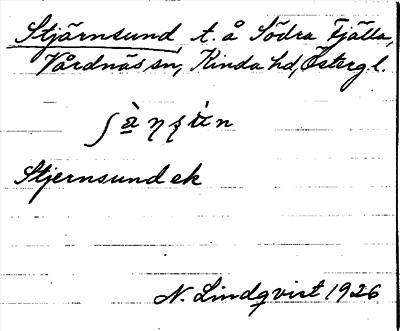 Stjärnsund, t. å Södra Fjälla,
Vårdnäs sn, Kinda hd, Östergl.
Stjernsund ek
N. Lindqvist 1926